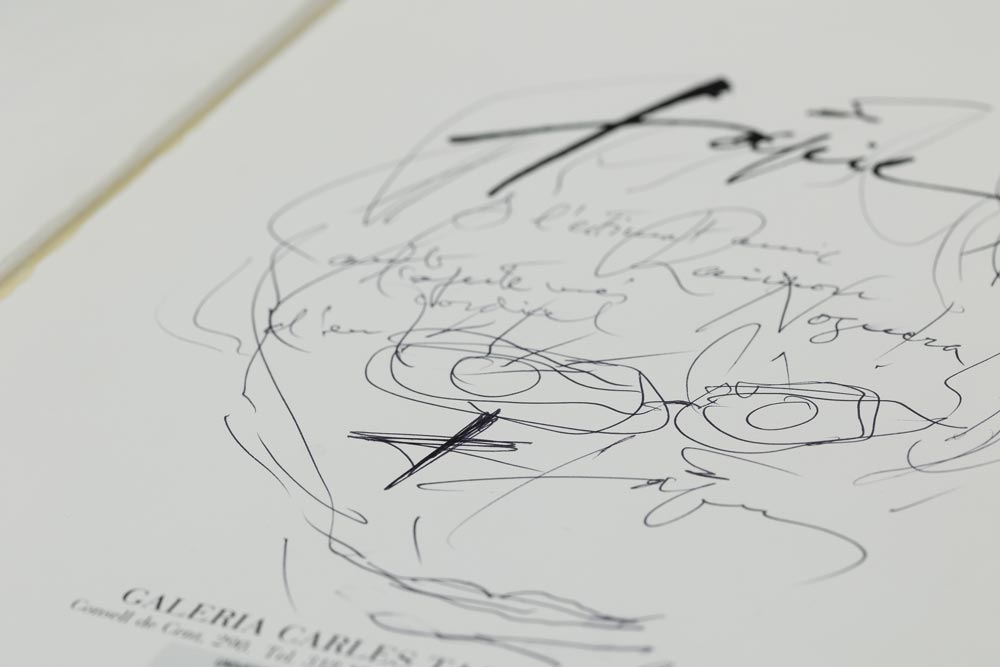 Tàpie
A l'estimat
amb Noguera
l'afecte més
cordial
d'en
GALERIA CARLES TA
Consell de Cent, 290. Tel.